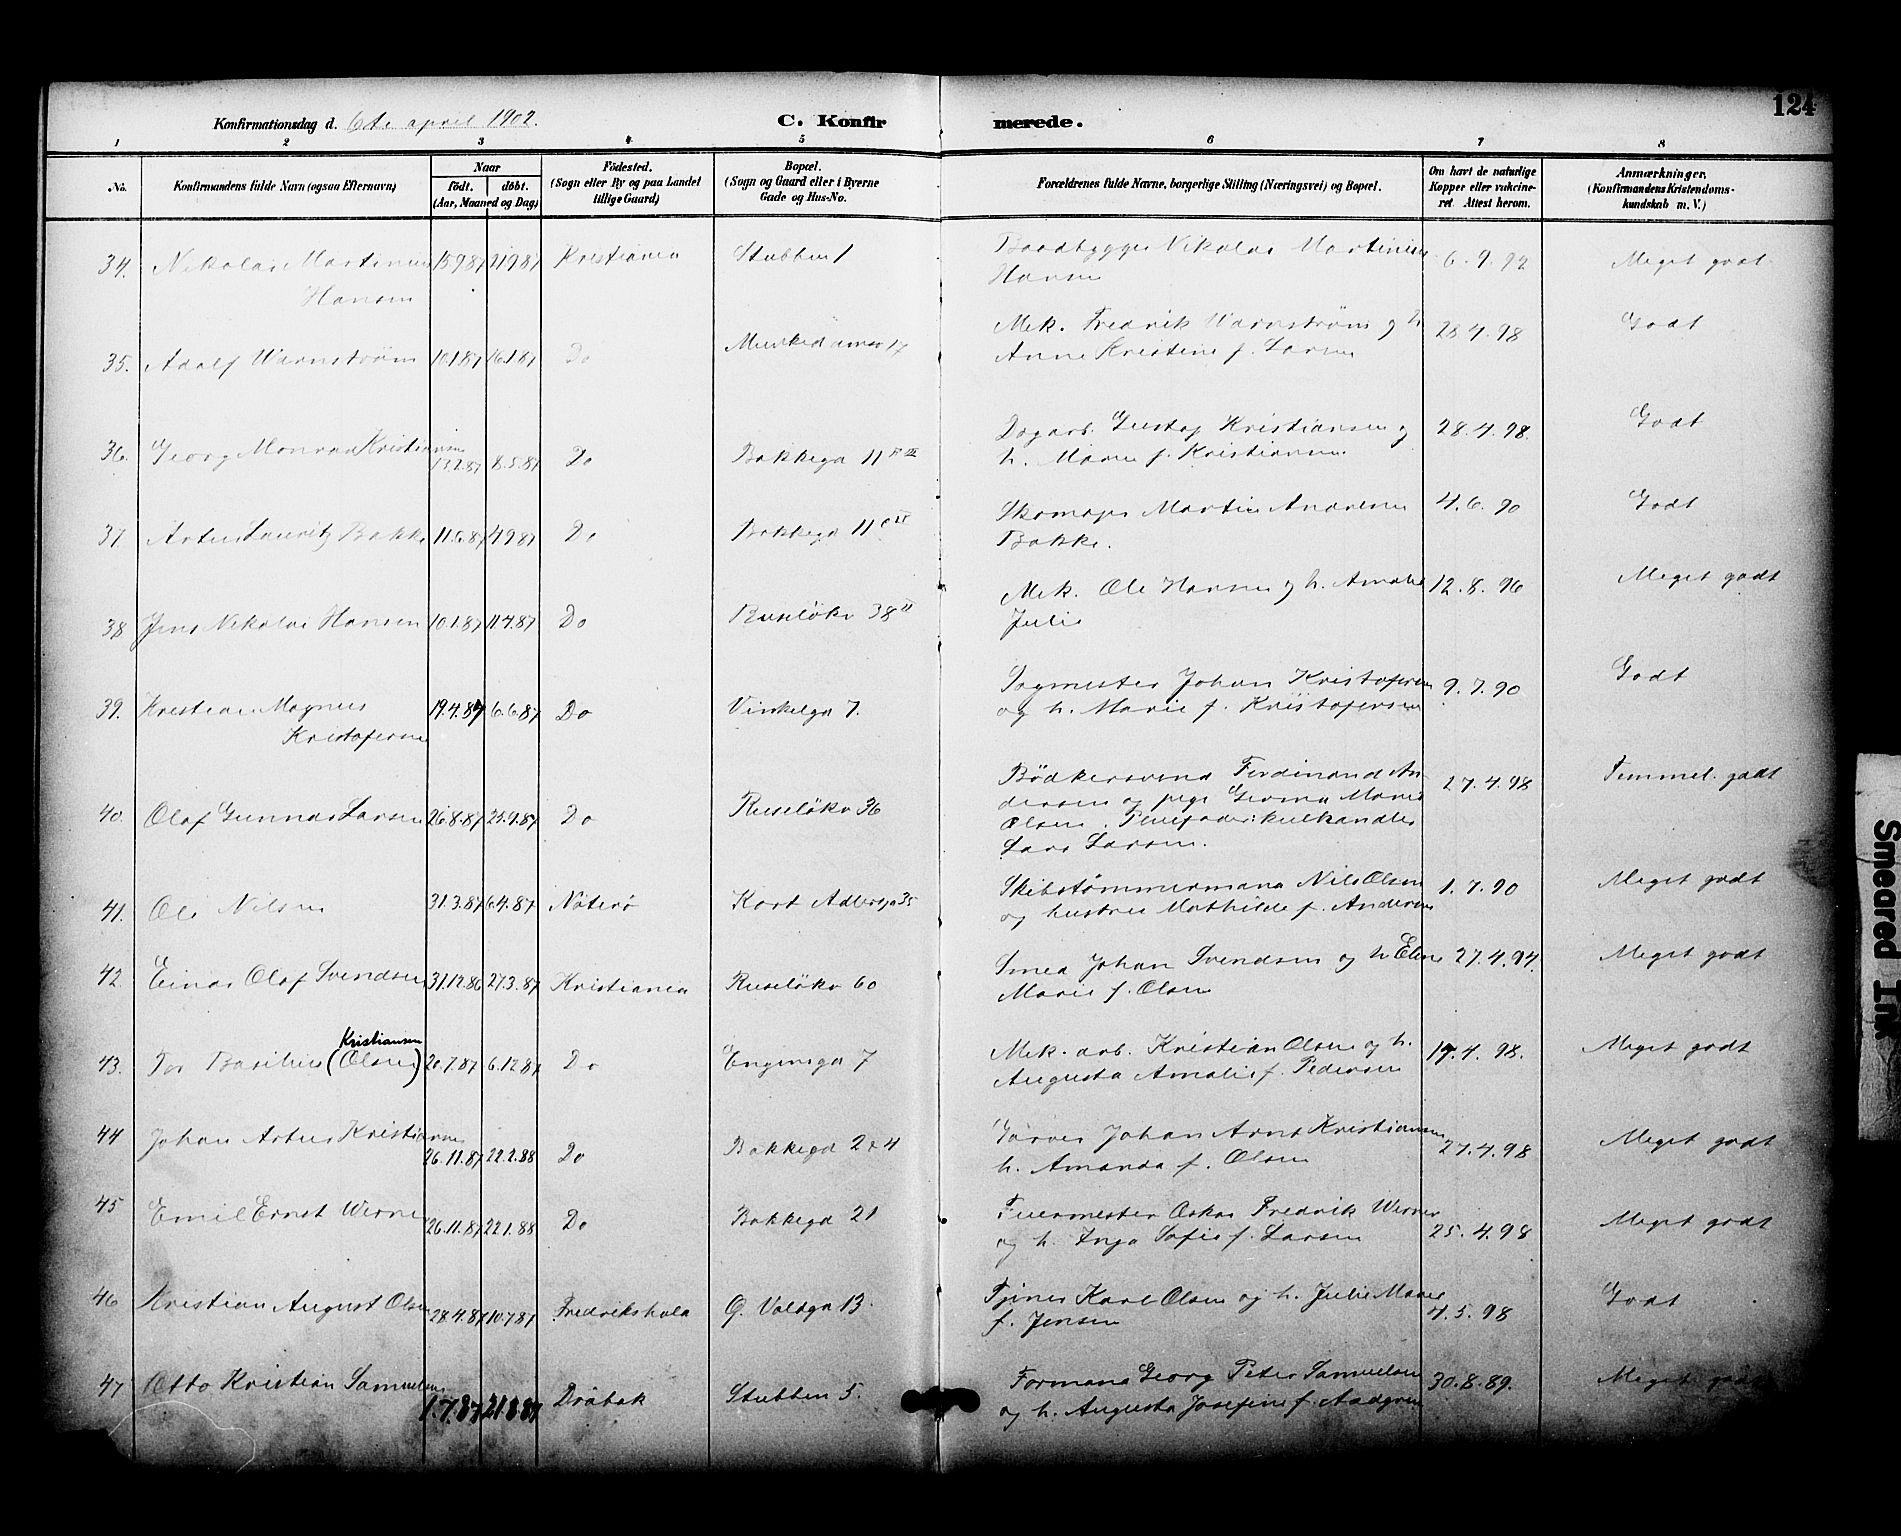 124
Konfirmationsdag d. 6te april 1902.
C. Konfirmerede.
1 2 3 4 5 6 7 8
No.
Konfirmandens fulde Navn (ogsaa Efternavn)
Naar
födt. döbt.
(Aar, Maaned og Dag)
Födested.
(Sogn eller By og paa Landet
tillige Gaard)
Bopæl.
(Sogn og Gaard eller i Byerne
Gade og Hus-No.
Forældrenes fulde Navne, borgerlige Stilling (Næringsvei) og Bopæl.
Om havt de naturlige
Kopper eller vakcine-
ret Attest herom.
Anmærkninger,
(Konfirmandens Kristendoms-
kundskab m. V.)
34. Nikolai Martinus 15987 21987 Kristiania Stubben 1 Baadbygger Nikolai Martinius 6.9.92 Meget godt
Hansen Hansen
35. Adolf Warnström 10187 16187 Do Munkedamsv 17 Mek. Fredrik Warnström og h. 28 4.98 Godt
Anne Kristine f. Larsen
36. Georg Monrad Kristiansen 13.2.87 8.5.87 Do Bakkegd 11 Dagarb. Gustaf Kristiansen og 28.4.98. Godt
h. Marie f. Kristiansen
37. Artur Lauritz Bakke 11.6.87 4987 Do Bakkegd 11 Skomager Martin Andresen 4.6.90 Godt
Bakke.
38. Jens Nikolai Hansen 10.1.87 11.4.87 Do Ruselökv 38 II Mek. Ole Hansen og h. Amalie 12.8.96 Meget godt
Julie
39. Kristian Magnus 19.4.87 6.6.87 Do Vinkelgd 7. Sagmester Johan Kristofersen 9.7.90 Godt
Kristofersen og h. Marie f. Kristofersen
40. Olaf Gunnar Larsen 26.8.87 25.9.87 Do Ruselökv 36 Bödkersvend Ferdinand An- 27.4.98 Temmel. godt
dersen og pige Gerina Marie
Olsen. Pleiefader: kulhandler
Lars Larsen.
41. Ole Nilsen 31.3.87 6.4.87 Nöterö Kort Adlersgd 35 Skibstömmermand Nils Olsen 1.7.90 Meget godt
og hustru Mathilde f. Andersen
42. Einar Olaf Svendsen 31.12.86 27.3.87 Kristiania Ruselökv 60 Smed Johan Svendsen og h Eline 27.4.94. Meget godt
Marie f. Olsen
Kristiansen
43. Tor Basilius (Olsen) 20.7.87 6.12.87 Do Engensgd 7 Mek. arb. Kristian Olsen og h. 19.4.98. Meget godt
Augusta Amalie f. Pedersen
44 Johan Artur Kristiansen 26.11.87 22.2.88 Do Bakkegd 2 & 4 Garver Johan Arnt Kristiansen 27.4.98 Meget godt
h. Amanda f. Olsen
45 Emil Ernst Werner 26.11.87 22.1.88 Do Bakkegd 21 Feiermester Oskar Fredrik Werner 25.4.98 Meget godt
og h. Inga Sofie f. Larsen
46 Kristian August Olsen 28.4.87 10.7.87 Fredrikshald G. Voldgd 13. Tjener Karl Olsen og h. Julie Marie 4.5.98 Godt
f. Jensen
47 Otto Kristian Samuelsen 1.7.87 21887 Dröbak Stubben 5. Formand Georg Peter Samuelsen 30.8.89. Meget godt
og h. Augusta Josefine f. Aadgren
Smeared Ink